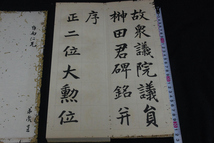 故衆議院議員
榊田君碑銘并
序
正二位大勲位